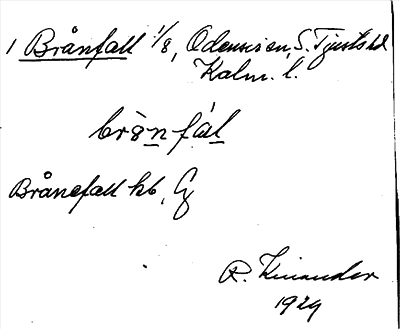 1 Brånfall 1/8, Odensvi sn, S. Tjusts hd
Kalm. l.
brånfal
Brånefall hb, Ej
R. Kinander
1929